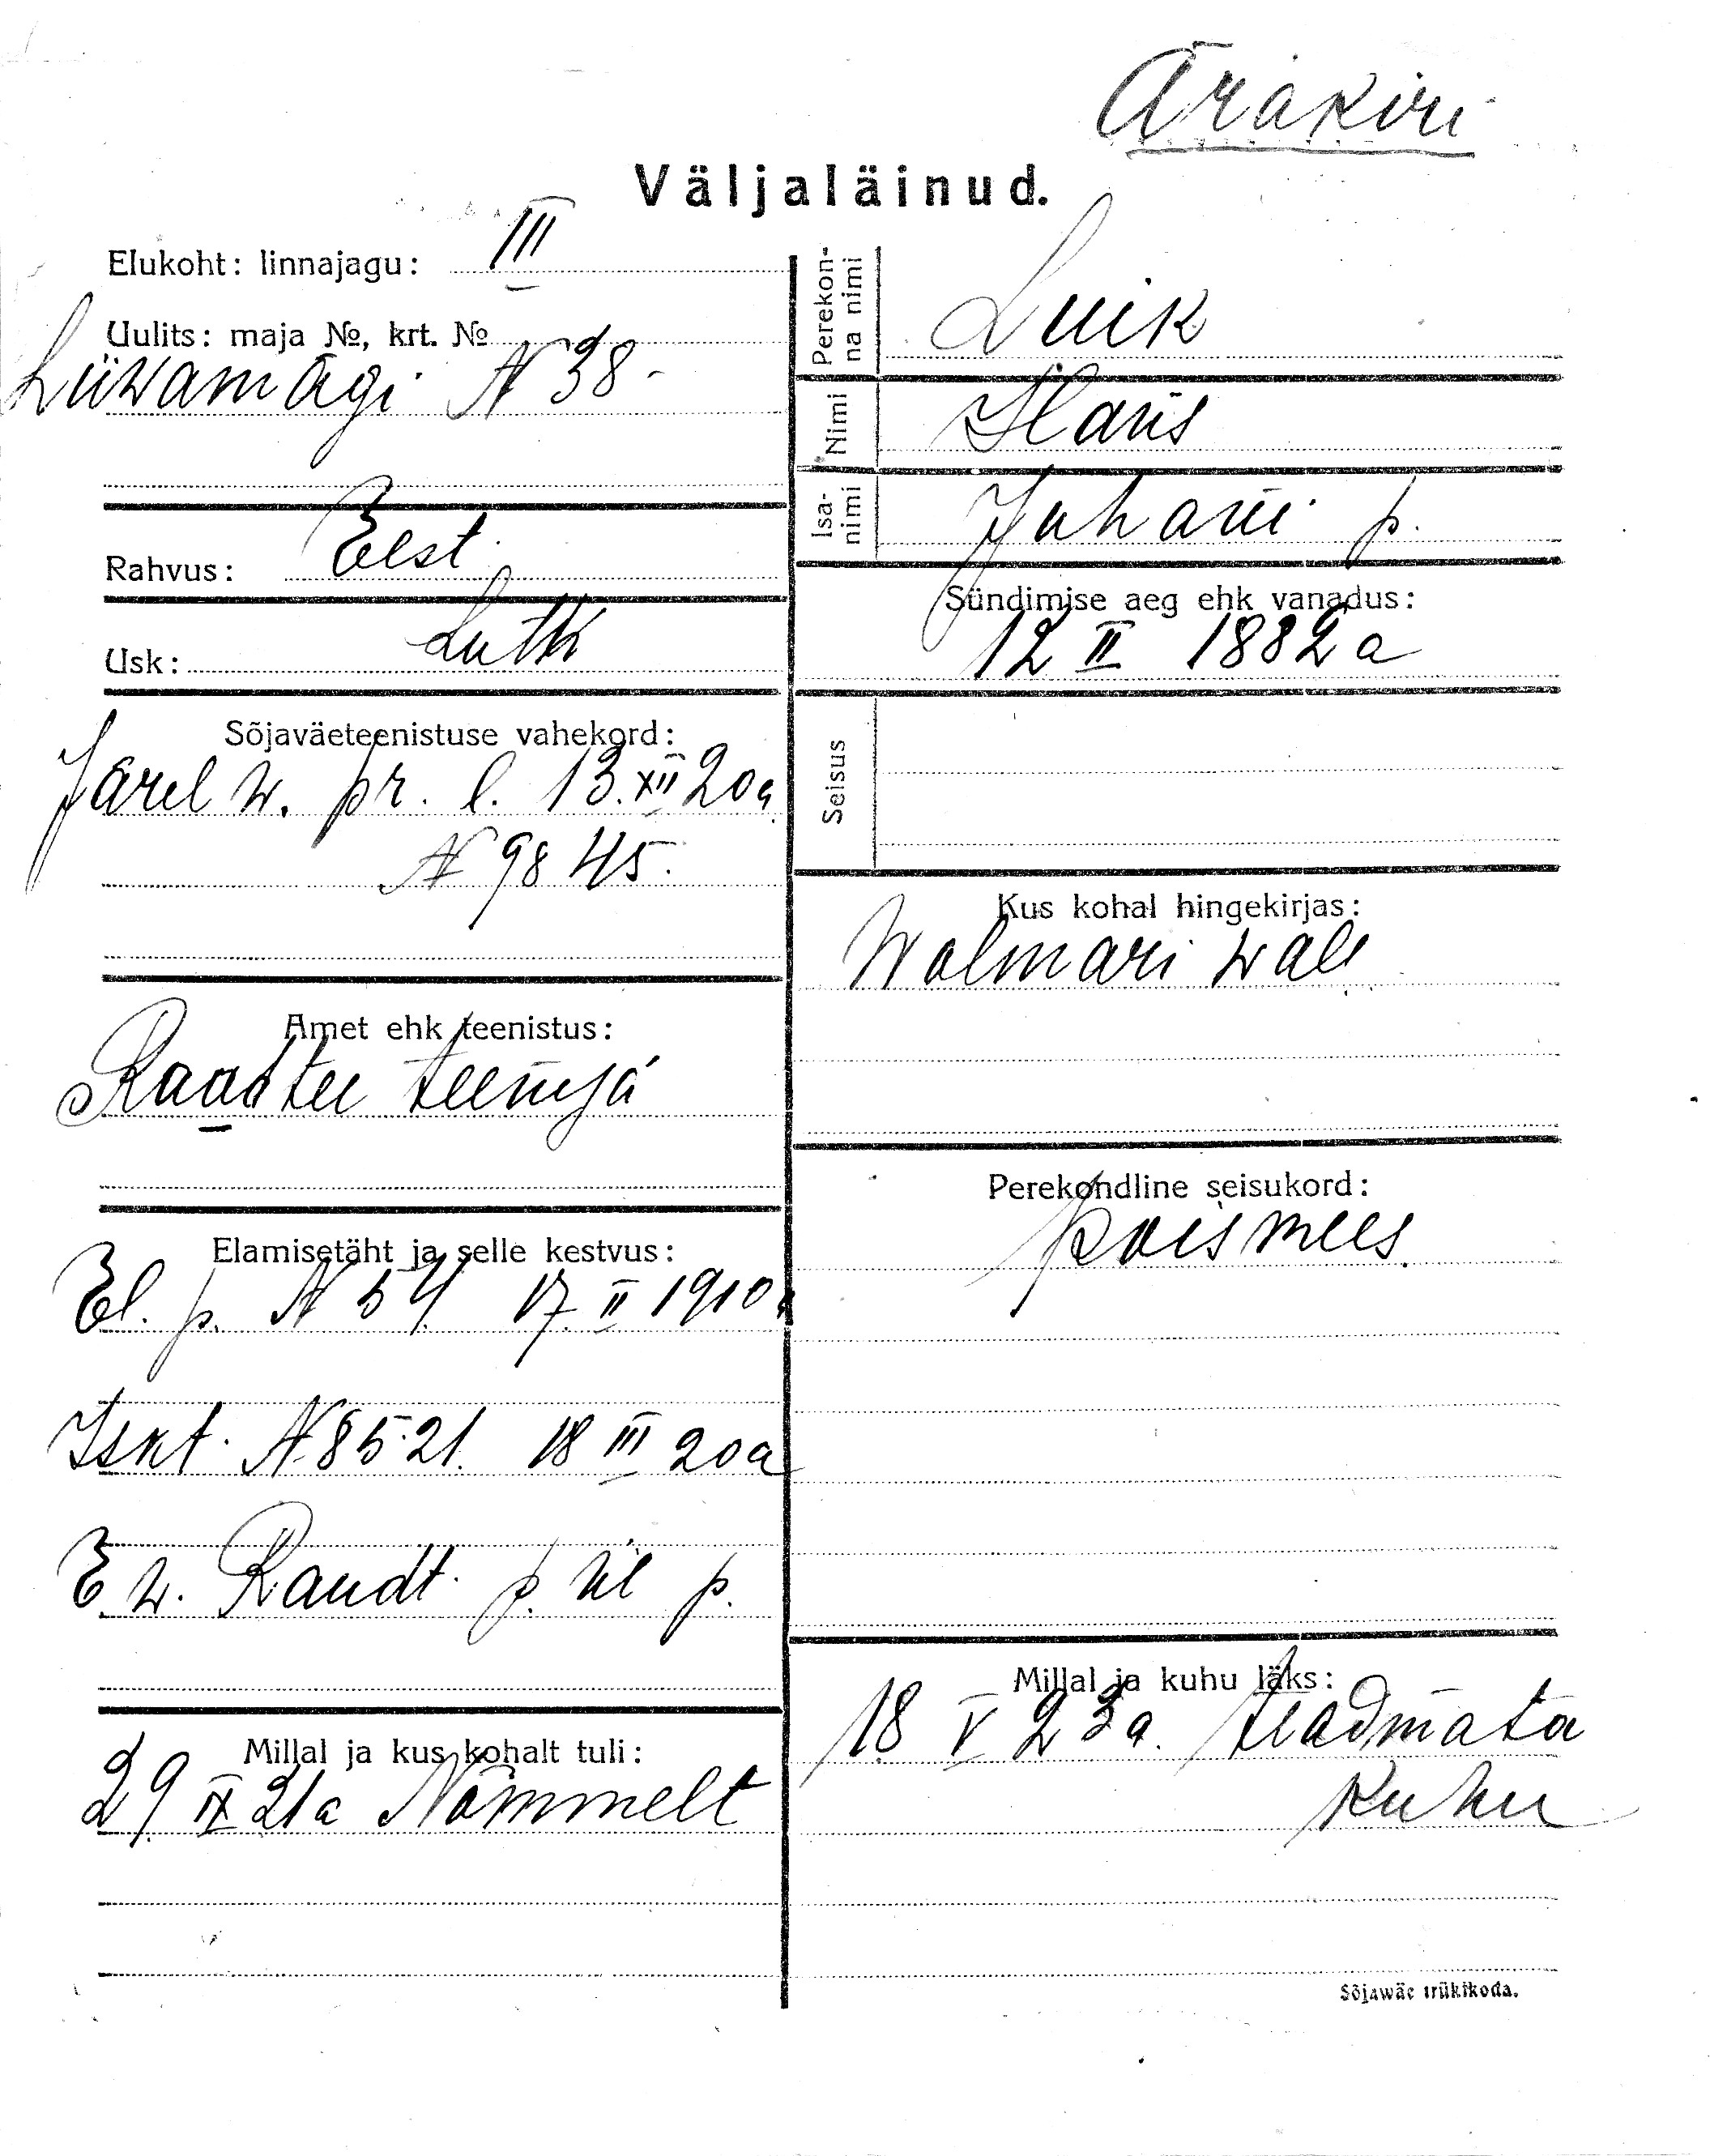 Ärakiri
Väljaläinud.
Elukoht: linnajagu: III
Uulits: maja №, krt. №
Liiwamägi N 38-
Rahvus: Eest
Usk: Luth
Sõjaväeteenistuse vahekord:
Järel w. pr. l. 13.XII 20a
N 9845.
Amet ehk teenistus:
Raudtee teenija
Elamisetäht ja selle kestvus:
El. p. N 54. 17. II 1910a
Iskt. N 8521. 18 III 20a
E w. Raudt. p.
Millal ja kus kohalt tuli:
29 IX 21a Nõmmelt
Perekon-
na nimi
Luik
Nimi
Hans
Isa-
nimi
Juhani p.
Sündimise aeg ehk vanadus:
12 II 1882 a
Seisus
Kus kohal hingekirjas:
Wolmari wall
Perekondline seisukord:
poismees.
Millal ja kuhu läks:
18 V 23a. teadmata
kuhu
Sõjawäe trükikoda.